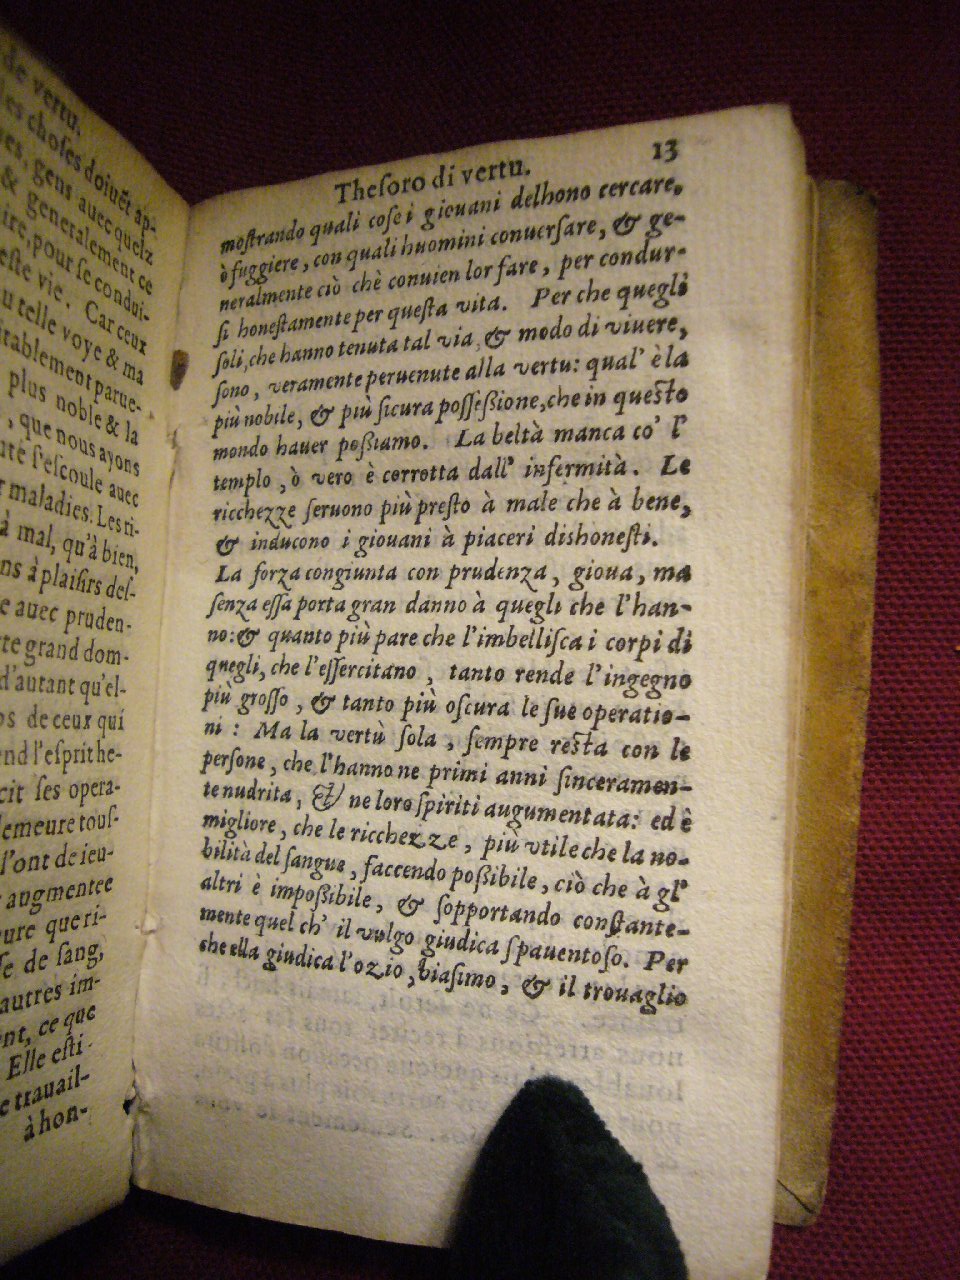 de vertu.
les choses doiuēt ap-
gens auec quelz
& generalement ce
pour se condui-
este vie. Car ceux
telle voye & ma
ritablement parue-
plus noble & la
, que nous ayons
s'escoule auec
maladies. Les ri-
à mal, qu'à bien,
à plaisirs des-
auec pruden-
grand dom-
d'autant qu'el-
de ceux qui
l'esprit he-
ses opera-
demeure tous-
l'ont de ieu-
augmentee
que ri-
de sang,
autres im-
ce que
Elle esti-
trauail-
à hon-
Thesoro di vertu. 13
mostrando quali cose i giouani delhono cercare,
ò fuggiere, con quali huomini conuersare, & ge-
neralmente ciò chè conuien lor fare, per condur-
si honestamente per questa vita. Per che quegli
soli, che hanno tenuta tal via, & modo di viuere,
sono, veramente peruenute alla vertu: qual' è la
più nobile, & più sicura possessione, che in questo
mondo hauer possiamo. La beltà manca co' l'
templo, ò vero è corrotta dall' infermità. Le
ricchezze seruono più presto à male che à bene,
& inducono i giouani à piaceri dishonesti.
La forza congiunta con prudenza, gioua, ma
senza essa porta gran danno à quegli che l'han-
no: & quanto più pare che l'imbellisca i corpi di
quegli, che l'essercitano, tanto rende l'ingegno
più grosso, & tanto più oscura le sue operatio-
ni: Ma la vertù sola, sempre resta con le
persone, che l'hanno ne primi anni sinceramen-
te nudrita, & ne loro spiriti augumentata: ed è
migliore, che le ricchezze, più vtile che la no-
bilità del sangue, faccendo possibile, ciò che à gl'
altri è impossibile, & sopportando constante-
mente quel ch' il vulgo giudica spauentoso. Per
che ella giudica l'ozio, biasimo, & il trouaglio